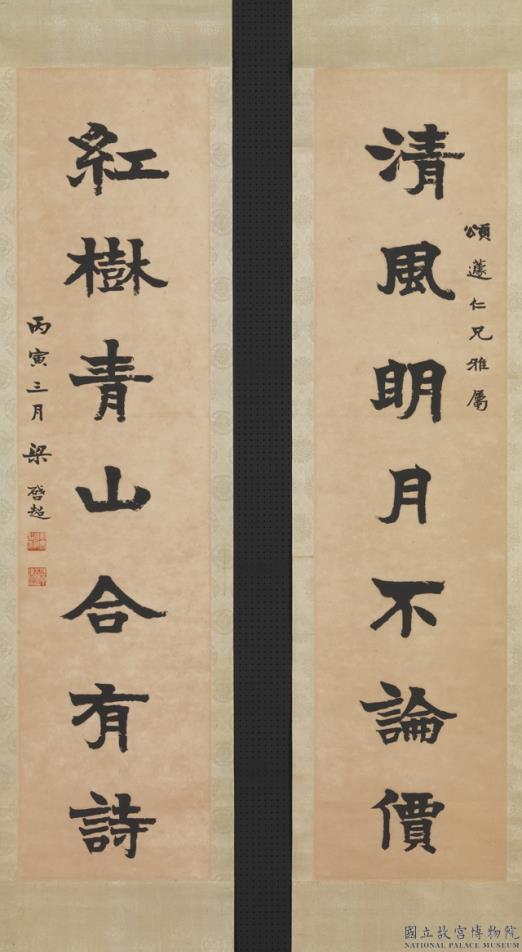 頌蘧仁兄雅屬
清風朙月不論價
紅樹青山合有詩
丙寅三月 梁啓超
國立故宮博物院
NATIONAL PALACE MUSEUM